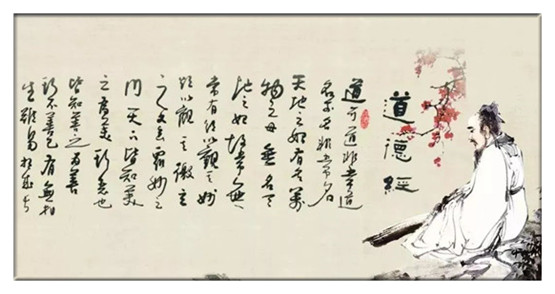 道德經
道可道非常道
名可名非常名
天地之始有名萬
物之母無名天
地之始故常無
常有欲以觀其妙
欲以觀其徼玄
之又玄眾妙之
門天下皆知美
之為美斯惡也
皆知善之為善
斯不善已有無相
生難易相成長